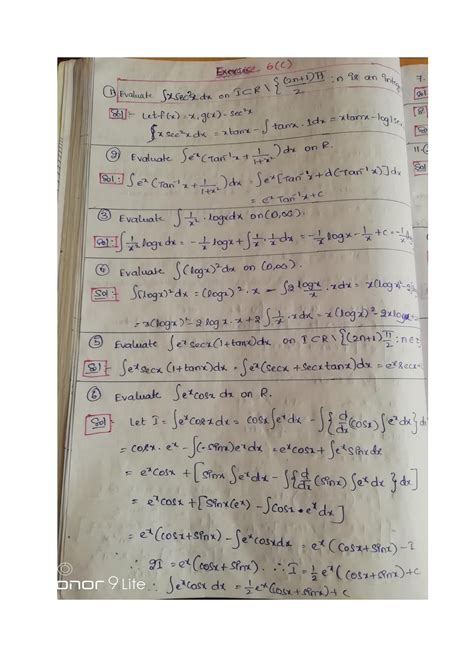 Exercise 6(c)
1) Evaluate ∫x sec²x dx on I⊂R\{(2n+1)π/2 : n is an integ
Sol:- Let f(x)=x, g(x)=sec²x
∫x sec²x dx = x tanx - ∫tanx.1dx = x tanx - log|sec
7.
② Evaluate ∫eˣ(Tan⁻¹x + 1/1+x²)dx on R.
Sol: ∫eˣ(Tan⁻¹x + 1/1+x²)dx = ∫eˣ[Tan⁻¹x + d(Tan⁻¹x)]dx
= eˣ Tan⁻¹x + c
③ Evaluate ∫1/x² . logx dx on (0,∞).
Sol: ∫1/x² logx dx = -1/x logx + ∫1/x . 1/x dx = -1/x logx - 1/x + c = -1/x
④ Evaluate ∫(logx)² dx on (0,∞).
Sol:- ∫(logx)² dx = (logx)² . x - ∫2 logx/x . x dx = x(logx)² - 2
= x(logx)² - 2 logx . x + 2∫1/x . x dx = x(logx)² - 2x logx +
⑤ Evaluate ∫eˣ secx (1+tanx)dx, on I⊂R\{(2n+1)π/2 : n∈
Sol- ∫eˣ secx (1+tanx)dx = ∫eˣ(secx + secx tanx)dx = eˣ secx +
⑥ Evaluate ∫eˣ cosx dx on R.
Sol- Let I = ∫eˣ cosx dx = cosx ∫eˣ dx - ∫{d/dx (cosx) ∫eˣ dx} d
= cosx . eˣ - ∫(-sinx)eˣ dx = eˣ cosx + ∫eˣ sinx dx
= eˣ cosx + [sinx ∫eˣ dx - ∫{d/dx (sinx) ∫eˣ dx} dx]
= eˣ cosx + [sinx (eˣ) - ∫cosx • eˣ dx]
= eˣ(cosx + sinx) - ∫eˣ cosx dx = eˣ(cosx + sinx) - I
∴ 2I = eˣ(cosx + sinx). ∴ I = 1/2 eˣ(cosx + sinx) + c
∴ ∫eˣ cosx dx = 1/2 eˣ(cosx + sinx) + c
onor 9 Lite